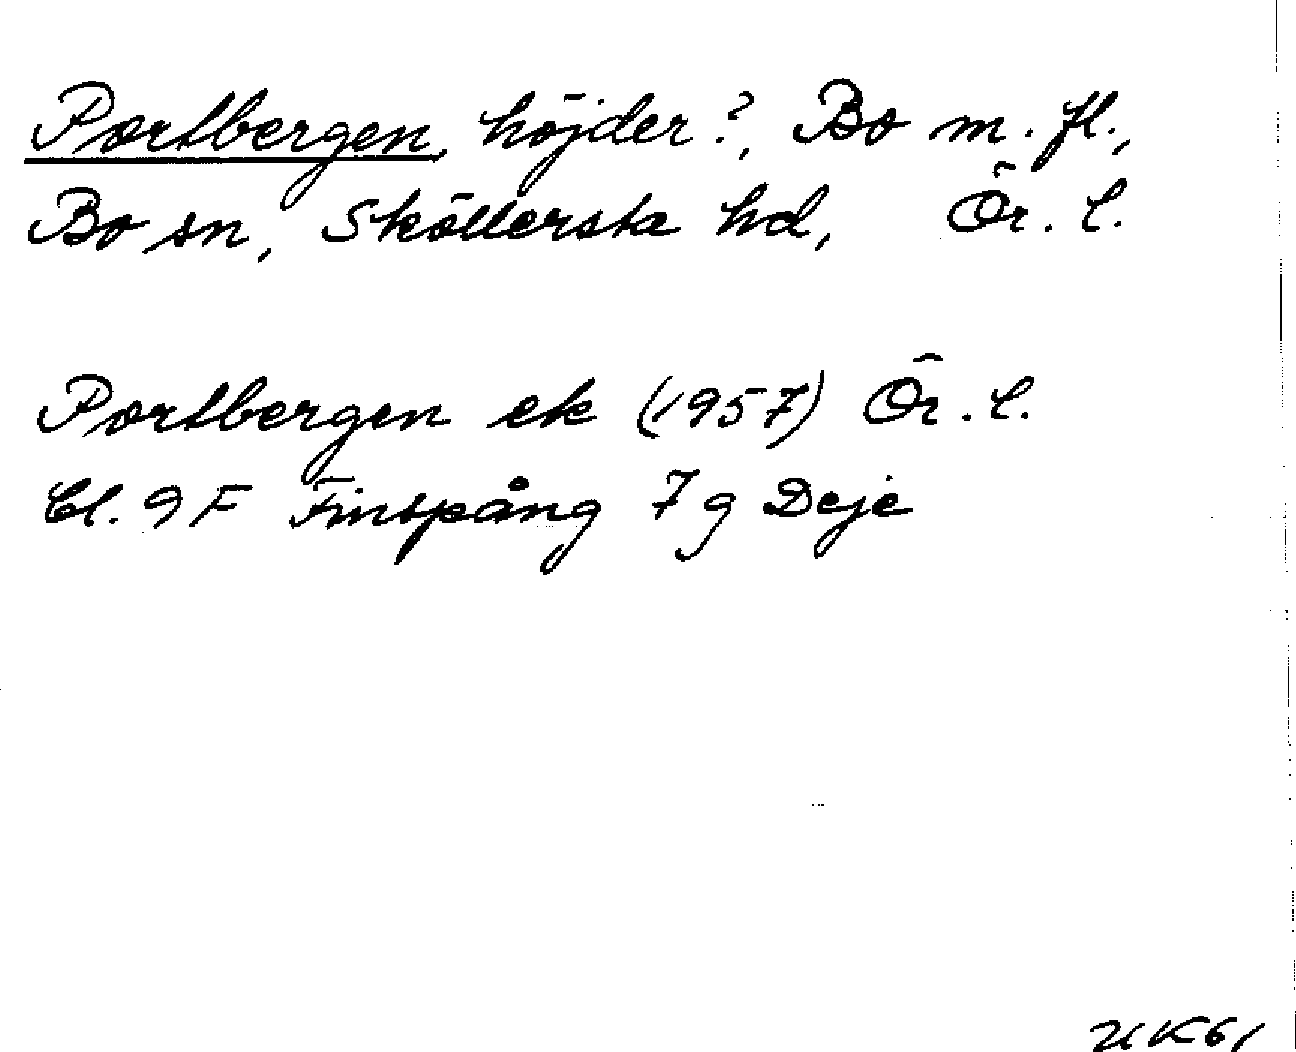 Portbergen, höjder?, Bo m. fl.,
Bo sn, Sköllersta hd, Ör. l.
Portbergen ek (1957) Ör. l.
bl. 9F Finspång 7g Deje
UK61